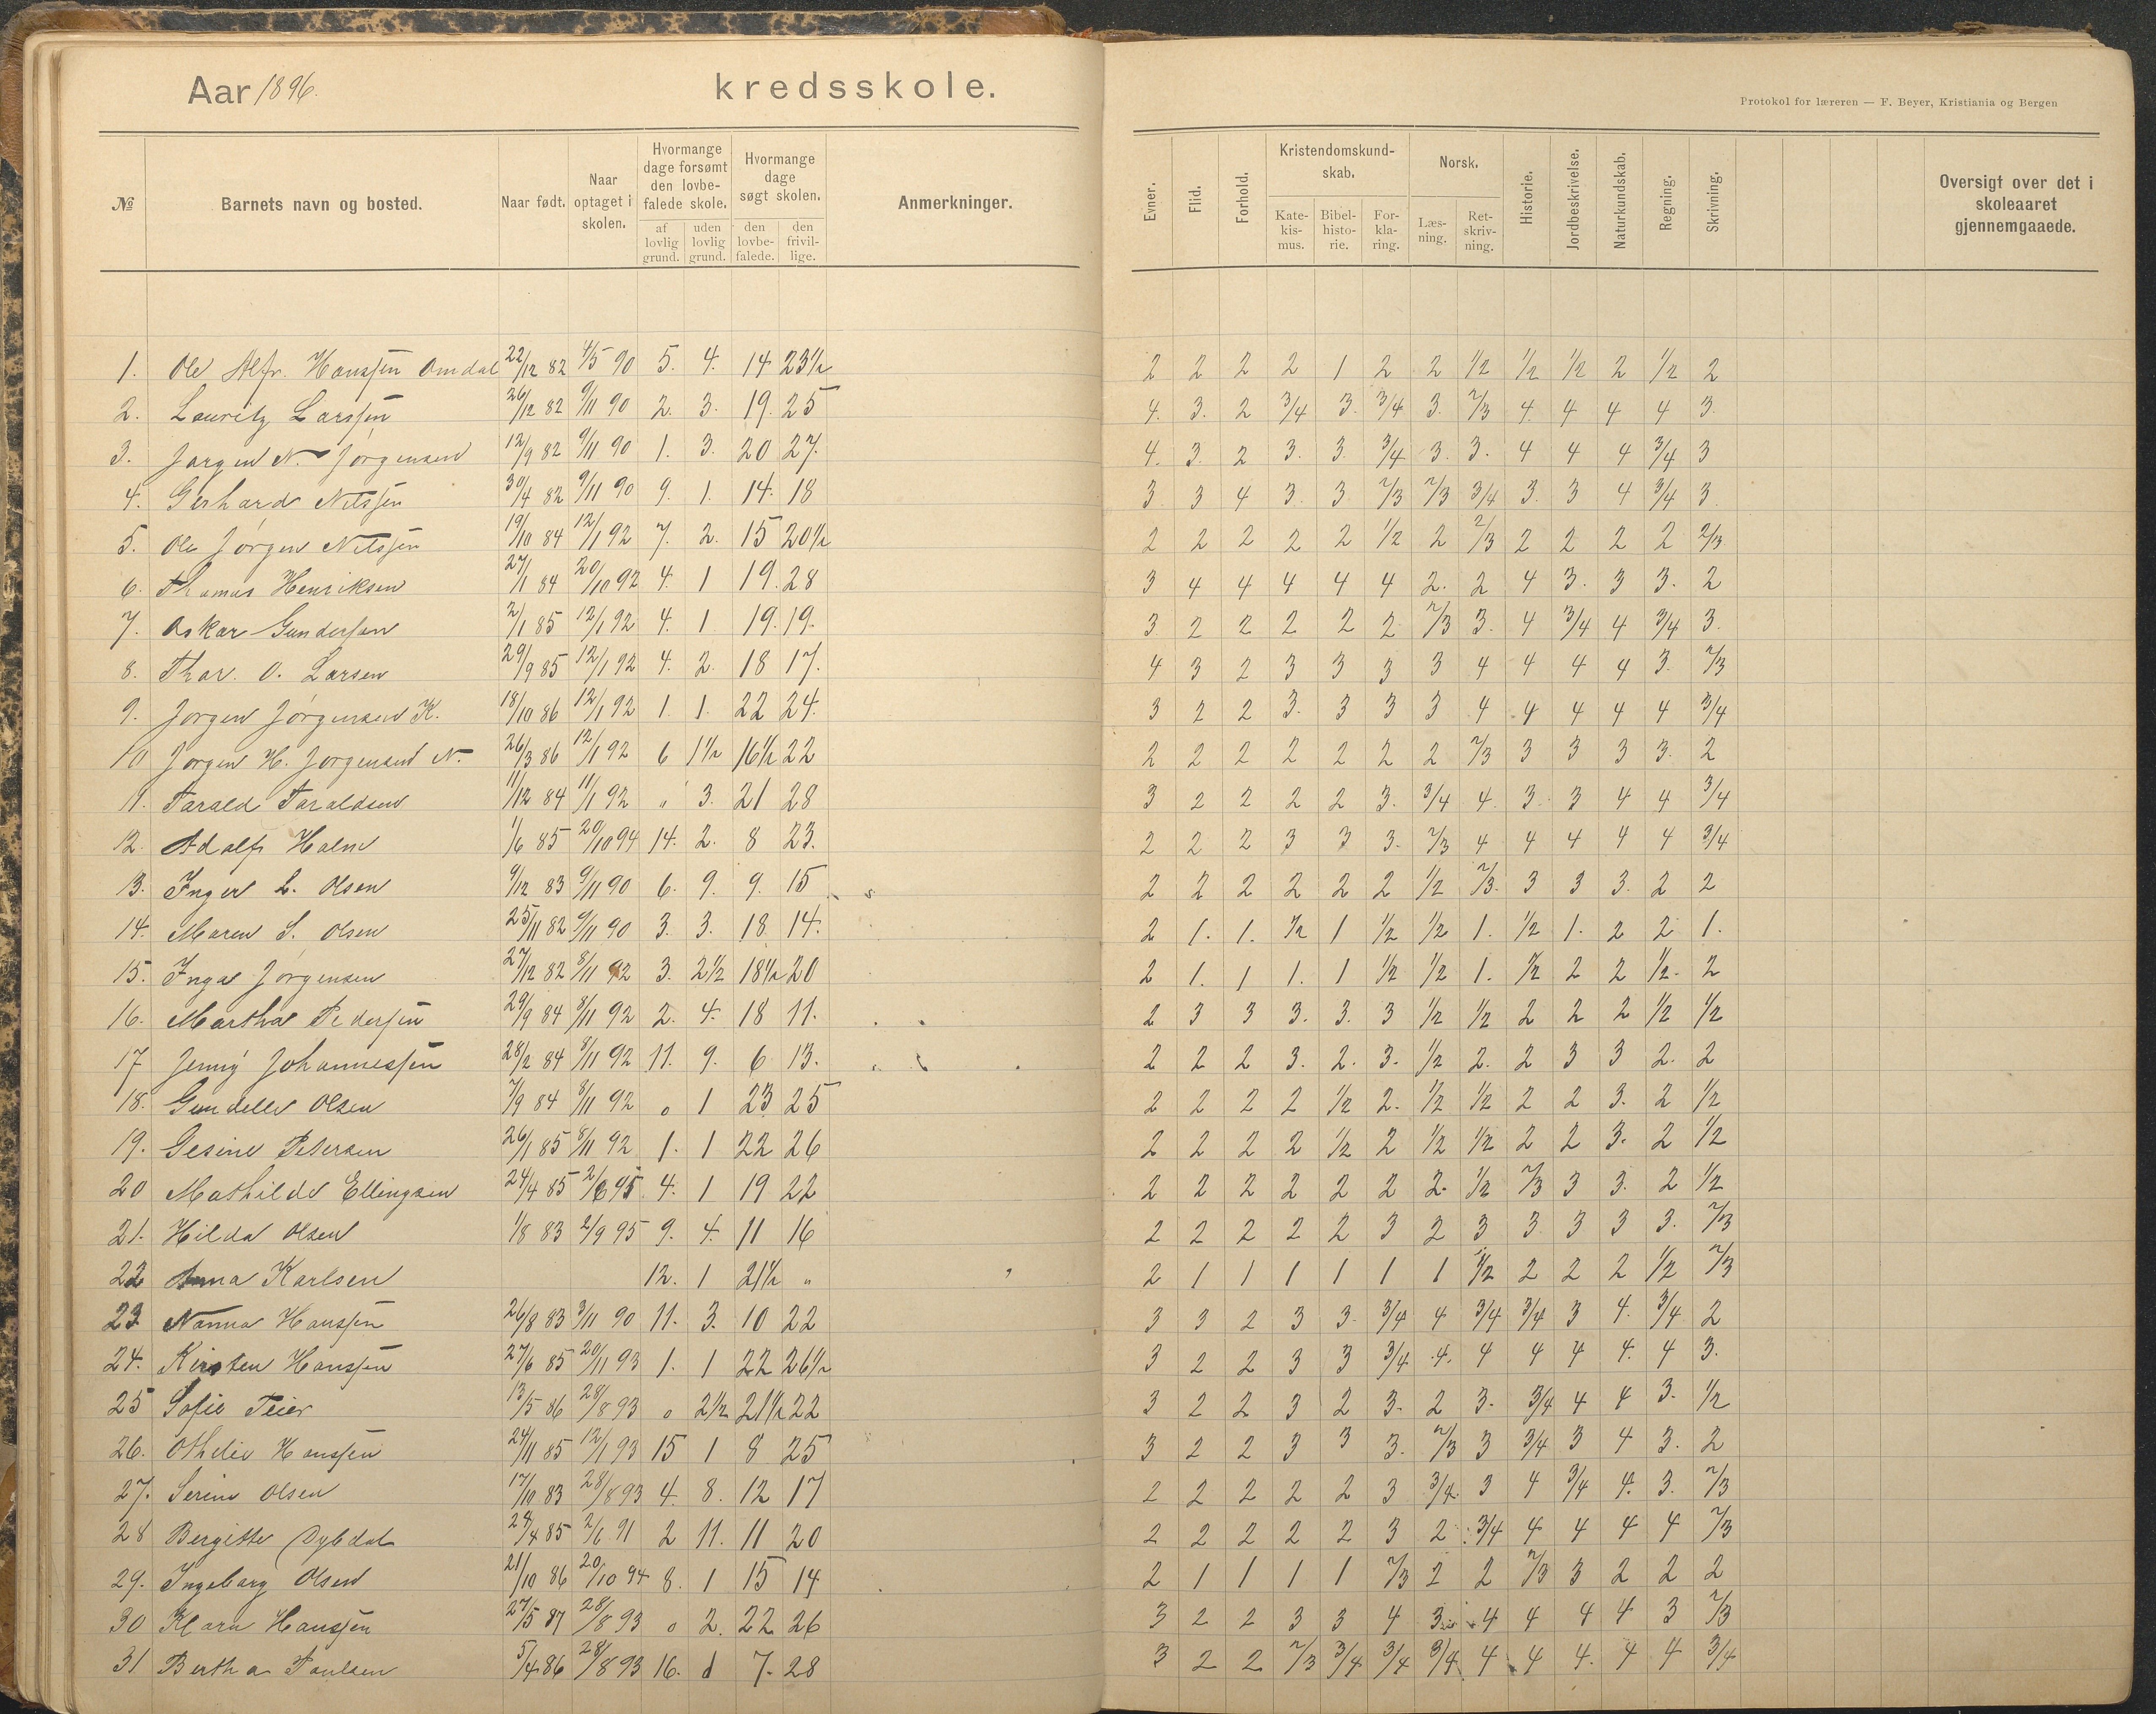 Aar 1896. kredsskole.
Protokol for læreren — F. Beyer, Kristiania og Bergen
№ Barnets navn og bosted. Naar født. Naar optaget i skolen. Hvormange dage forsømt den lovbefalede skole. af lovlig grund. uden lovlig grund. Hvormange dage søgt skolen. den lovbefalede. den frivillige. Anmerkninger. Evner. Flid. Forhold. Kristendomskundskab. Katekismus. Bibelhistorie. Forklaring. Norsk. Læsning. Retskrivning. Historie. Jordbeskrivelse. Naturkundskab. Regning. Skrivning. Oversigt over det i skoleaaret gjennemgaaede.
1. Ole Alfr. Hanssen Omdal 22/12 82 4/5 90 5. 4. 14 23½ 2 2 2 2 1 2 2 1/2 1/2 1/2 2 1/2 2
2. Lauritz Larssen 26/12 82 9/11 90 2. 3. 19. 25 4. 3. 2 3/4 3. 3/4 3. 2/3 4. 4 4 4 3.
3. Jørgen N. Jørgensen 12/9 82 9/11 90 1. 3. 20 27. 4. 3. 2 3. 3. 3/4 3. 3. 4 4 4 3/4 3
4. Gerhard Nilssen 30/4 82 9/11 90 9. 1. 14. 18 3. 3 4 3. 3. 2/3 2/3 3/4 3. 3 4 3/4 3.
5. Ole Jørgen Nilssen 19/10 84 12/1 92 7. 2. 15 20½ 2 2 2 2 2 1/2 2 2/3 2 2 2 2 2/3
6. Thomas Henriksen 27/1 84 20/10 92 4. 1 19. 28 3 4 4 4 4 4 2. 2 4 3. 3 3. 2
7. Oskar Gundersen 2/1 85 12/1 92 4. 1 19. 19. 3 2 2 2 2 2 2/3 3. 4 3/4 4 3/4 3.
8. Thor. O. Larsen 29/9 85 12/1 92 4. 2. 18 17. 4 3 2 3 3 3 3 4 4 4 4 3. 2/3
9. Jørgen Jørgensen K. 18/10 86 12/1 92 1. 1. 22 24. 3 2 2 3. 3 3 3 4 4 4 4 4 3/4
10 Jørgen H. Jørgensen N. 26/3 86 12/1 92 6 1½ 16½ 22 2 2 2 2 2 2 2 2/3 3 3 3 3. 2
11. Tarald Taraldsen 11/12 84 11/1 92 " 3. 21 28 3 2 2 2 2 3. 3/4 4. 3. 3 4 4 3/4
12. Adolf Holm 1/6 85 20/10 94 14. 2. 8 23. 2 2 2 3 3 3. 2/3 4 4 4 4 4 3/4
13. Inger L. Olsen 9/12 83 9/11 90 6. 9. 9. 15 2 2 2 2 2 2 1/2 2/3. 3 3 3. 2 2
14. Maren S. Olsen 25/11 82 9/11 90 3. 3. 18 14. 2 1. 1. 1/2 1 1/2 1/2 1. 1/2 1. 2 2 1.
15. Inga Jørgensen 27/12 82 8/11 92 3. 2½ 18½ 20 2 1. 1 1. 1 1/2 1/2 1. 1/2 2 2 1/2. 2
16. Martha Pedersen 29/9 84 8/11 92 2. 4. 18 11. 2 3 3 3. 3. 3 1/2 1/2 2 2 2 1/2 1/2
17 Jenny Johannessen 28/2 84 8/11 92 11. 9. 6 13. 2 2 2 3. 2. 3. 1/2 2. 2 3 3 2. 2
18. Gundelle Olsen 7/9 84 8/11 92 0 1 23 25 2 2 2 2 1/2 2. 1/2 1/2 2 2 3. 2 1/2
19. Gesine Petersen 26/1 85 8/11 92 1. 1 22 26 2 2 2 2 1/2 2 1/2 1/2 2 2 3. 2 1/2
20 Mathilde Ellingsen 24/4 85 4. 1 19 22 2 2 2 2 2 2 2. 1/2 2/3 3 3. 2 1/2
21. Hilda Olsen 1/8 83 2/9 95 9. 4. 11 16 2 2 2 2 2 3 2 3 3 3 3 3. 2/3
22 Anna Karlsen 12. 1 21½ " 2 1 1 1 1 1 1 1/2 2 2 2 1/2 2/3
23. Nanna Hanssen 26/8 83 3/11 90 11. 3. 10 22 3 3 2 3 3. 3/4 4 3/4 3/4 3 4. 3/4 2
24. Kirsten Hanssen 27/6 85 20/11 93 1. 1 22 26½ 3 2 2 3 3 3/4 4. 4 4 4 4. 4 3.
25 Sofie Teier 13/5 86 28/8 93 0 2½ 21½ 22 3 2 2 3 2 3. 2 3. 3/4 4 4 3. 1/2
26. Othelie Hanssen 24/11 85 12/1 93 15 1 8 25 3 2 2 3 3 3. 2/3 3 3/4 3 4 3. 2
27. Serine Olsen 17/10 83 28/8 93 4. 8. 12 17 2 2 2 2 2 3 3/4. 3 4 3/4 4. 3. 2/3
28 Bergitte Dybdal 24/4 85 2/6 91 2 11. 11 20 2 2 2 2 2 3 2 3/4 4 4 4 4 2/3
29. Ingeborg Olsen 21/10 86 20/10 94 8. 1 15 14 2 1 1 1 1 2/3 2 2 2/3 3 2 2 2
30 Klara Hanssen 27/5 87 28/8 93 0 2. 22 26 3 2 2 3 3 4 3 4 4 4 4 3 2/3
31 Bertha Paulsen 5/4 86 28/8 93 16. 1 7. 28 3 2 2 2/3 3/4 3/4 3/4 4 4 4. 4 4 3/4